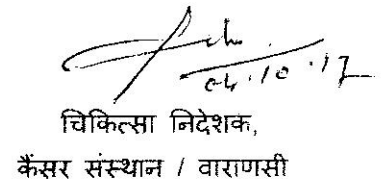 04.10.17
चिकित्सा निदेशक,
कैंसर संस्थान / वाराणसी